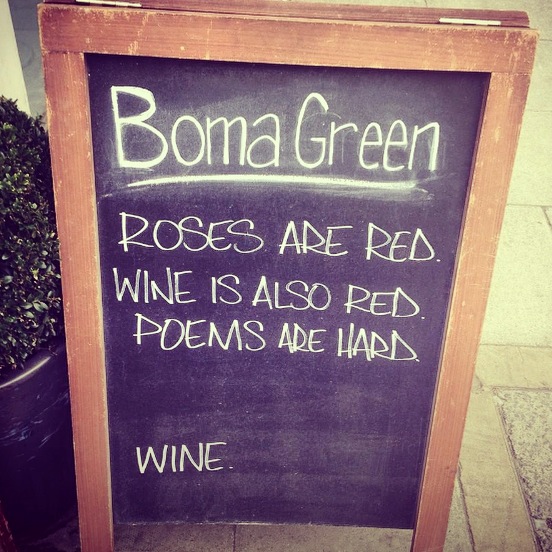 Boma Green
ROSES ARE RED.
WINE IS ALSO RED.
POEMS ARE HARD.
WINE.